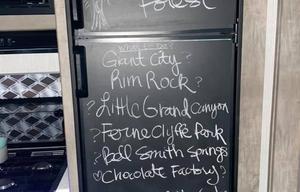 Forest
What to Do?
Giant City?
Rim Rock?
?Little Grand Canyon
?Ferne Clyffe Park
?Bell Smith Springs
♡Chocolate Factory?